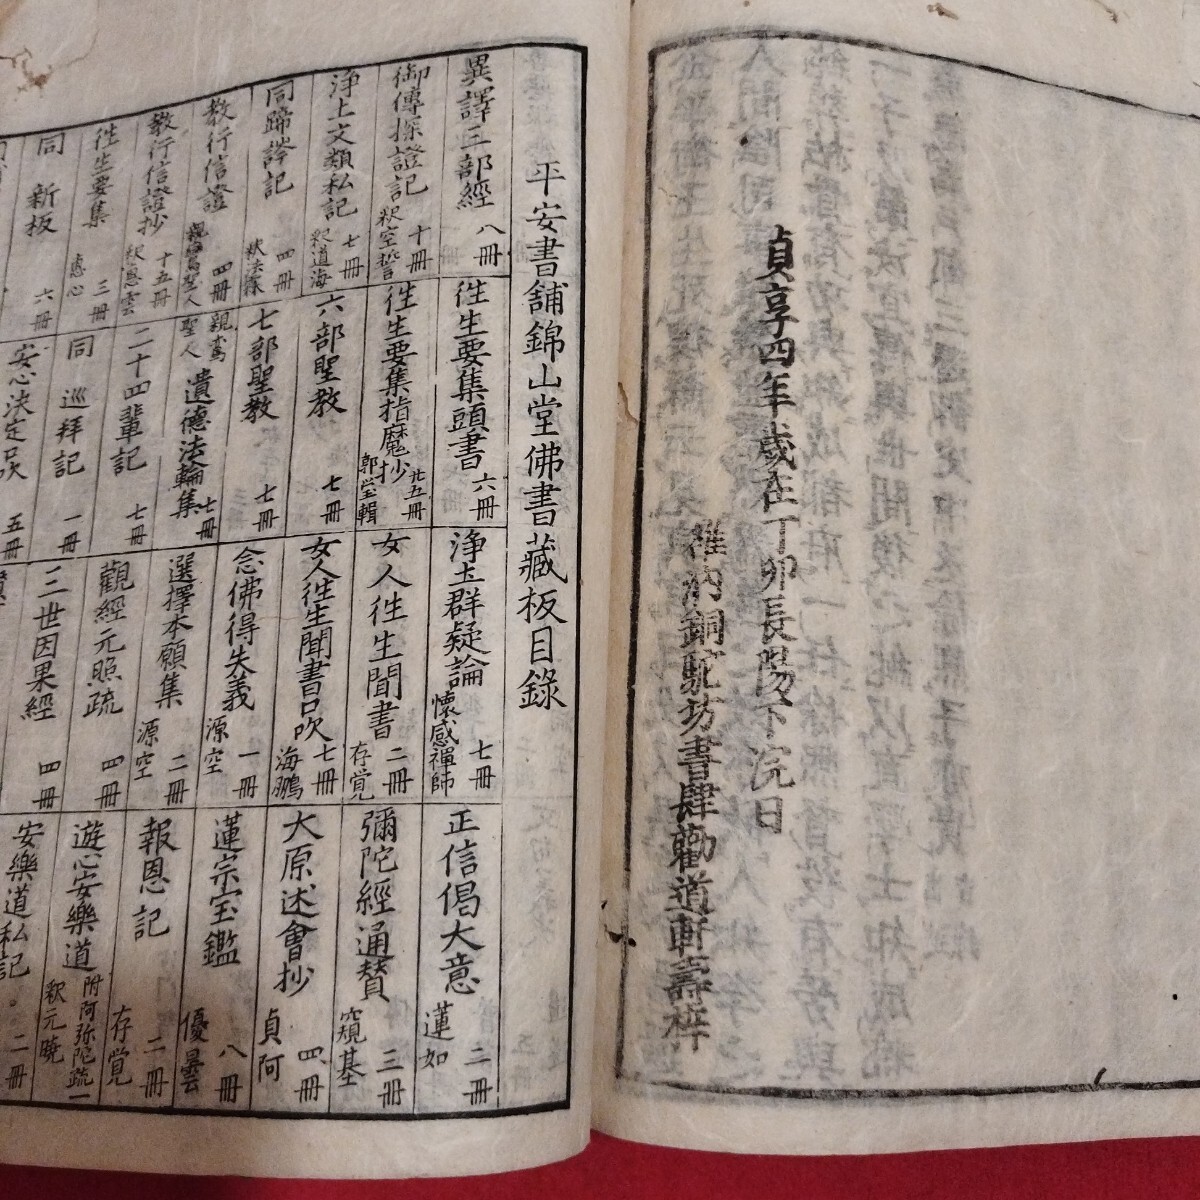 貞享四年歳在丁卯長陽下浣日
雒汭銅駝坊書肆勸道軒壽梓
平安書舗錦山堂佛書藏板目錄
異譯三部經 八冊
御傳探證記 十冊 釈空誓
淨土文類私記 七冊 釈道海
同蹄涔記 四冊
教行信證 四冊 親鸞聖人
教行信證抄 十五冊 釈惠雲
徃生要集 三冊 惠心
同 新板 六冊
徃生要集頭書 六冊
徃生要集指麾抄 廿五冊 郭堂輯
六部聖教 七冊
七部聖教 七冊
親鸞聖人遺德法輪集 七冊
二十四輩記 七冊
同 巡拜記 一冊
安心決定鈔 五冊
淨土群疑論 七冊 懷感禪師
女人徃生聞書 二冊 存覚
女人徃生聞書口吹 七冊 海鵬
念佛得失義 一冊 源空
選擇本願集 二冊 源空
觀經元照疏 四冊
三世因果經 四冊
正信偈大意 二冊 蓮如
彌陀經通賛 三冊 窺基
大原述會抄 四冊 貞阿
蓮宗宝鑑 八冊 優曇
報恩記 二冊 存覚
遊心安樂道 附阿弥陀疏一冊 釈元曉
安樂道私記 二冊